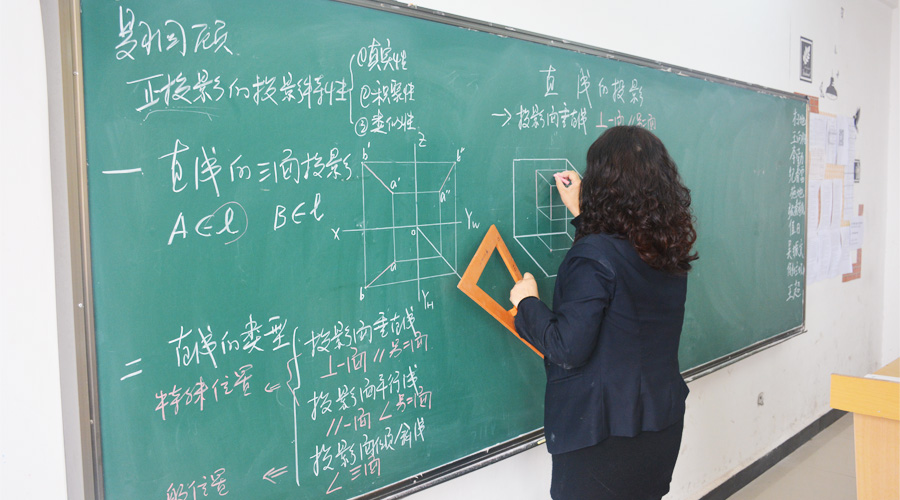 复习回顾
正投影的投影特性
①真实性
②积聚性
③类似性
一 直线的三面投影
A∈ℓ B∈ℓ
Z
b' b"
a' a"
X o YW
a
b
YH
二 直线的类型
投影面垂直线
⊥一面 //另二面
特殊位置
投影面平行线
//一面 ∠另二面
投影面倾斜线
∠三面
一般位置
直线的投影
→投影面垂直线 ⊥一面 //另二面